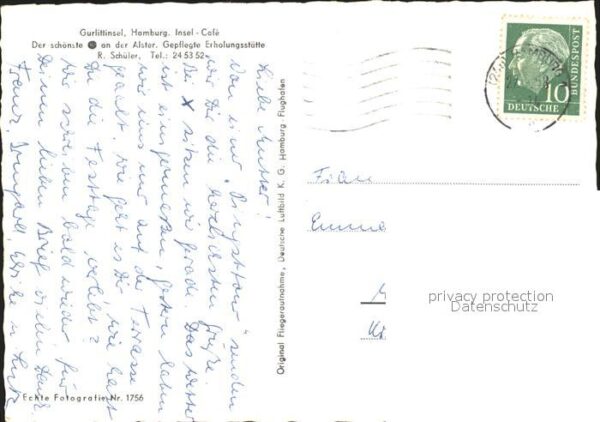 Gurlittinsel, Hamburg. Insel-Café
Der schönste an der Alster. Gepflegte Erholungsstätte
R. Schüler, Tel.: 24 53 52
Liebe Mutter!
Von einer "Pingsttour" senden
wir Dir die herzlichsten Grüße.
Bei x sitzen wir gerade. Das Wetter
ist einigermaßen, gestern haben
wir uns auf der Terrasse
geaalt. Wie geht es Dir, wie hast
Du die Festtage verlebt?
Wir schreiben bald wieder. Für
Deinen lieben Brief vielen Dank.
Franz, Irmgard,
Echte Fotografie Nr. 1756
Original Fliegeraufnahme, Deutsche Luftbild K. G. Hamburg Flughafen
DEUTSCHE
BUNDESPOST
10
Frau
Emma
privacy protection
Datenschutz